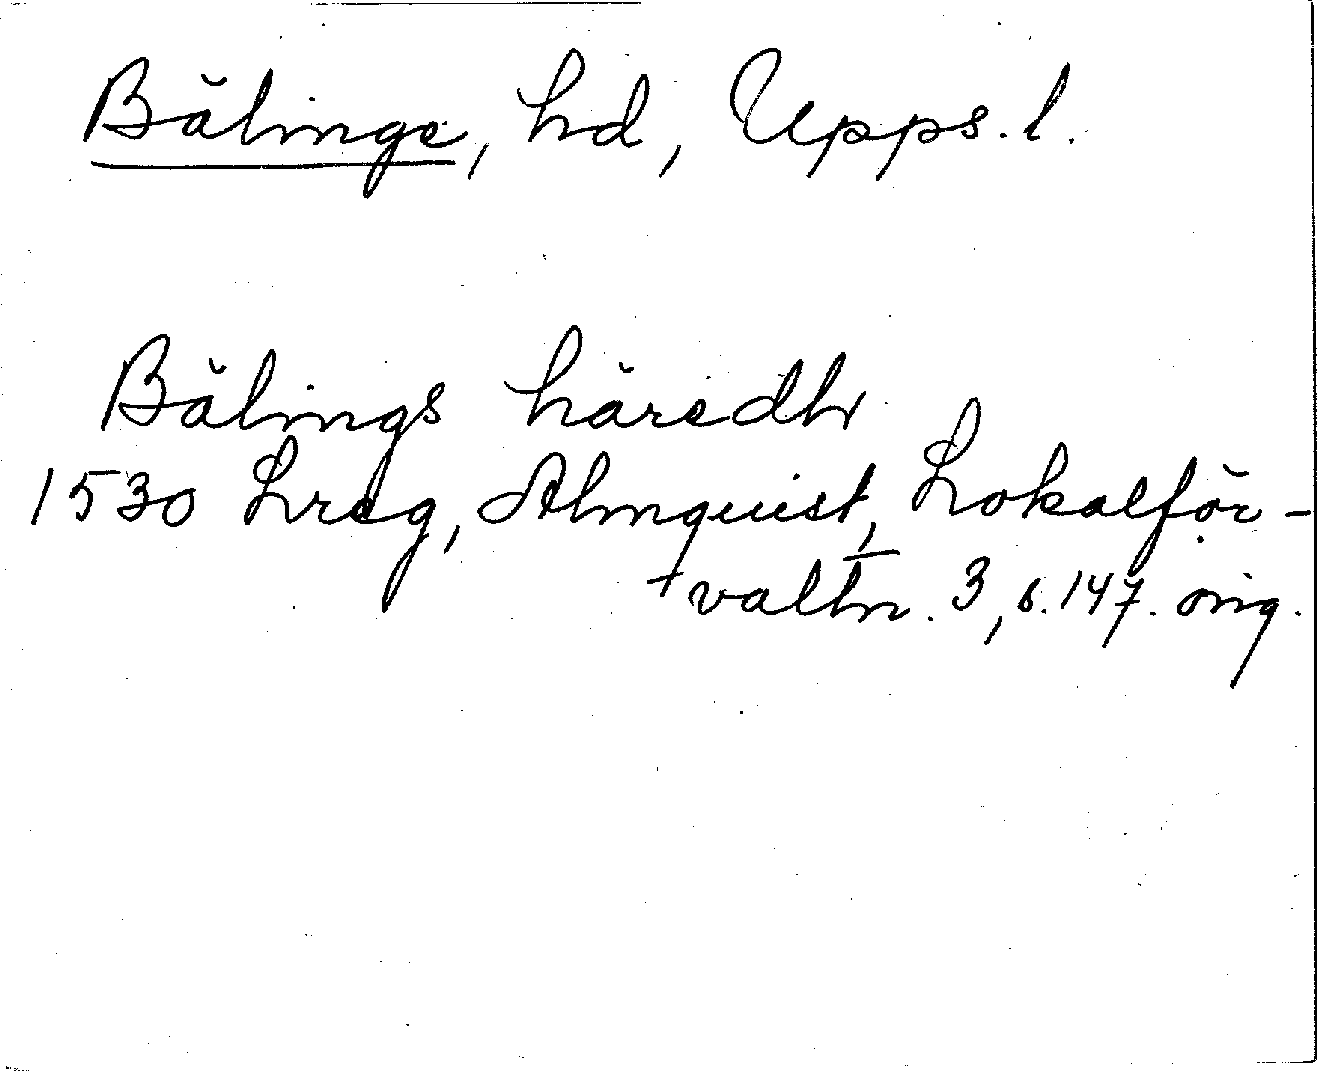 Bälinge, hd, Upps. l.
Bälings häredh
1530 Lreg, Almquist, Lokalför-
valtn. 3, s. 147. orig.